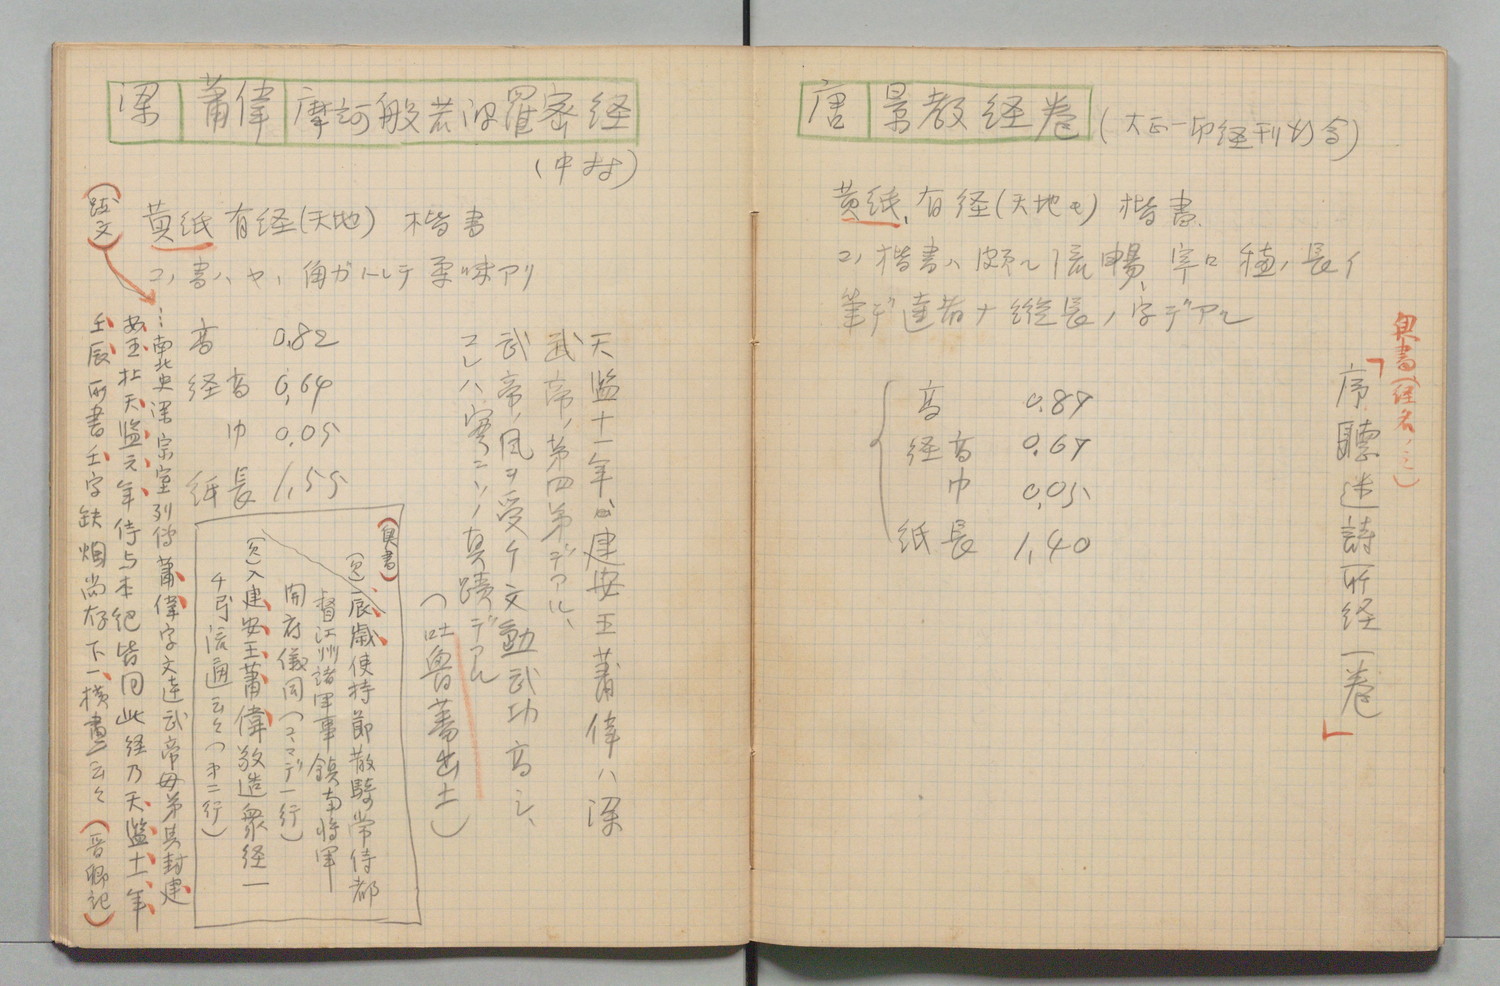 梁 蕭偉 摩訶般若波羅密経
(中村)
(跋文)
黄紙 有経(天地) 楷書
コノ書ハヤヽ角ガトレテ柔味アリ
高 0.82
経高 0.64
巾 0.05
紙長 1.55
天監十一年ハ建安王蕭偉ハ梁
武帝ノ第四弟デアル、
武帝ノ風ヲ受ケ文勤武功高シ、
コレハ実ニソノ真蹟デアル
(吐魯蕃出土)
(奥書)
(欠)辰歳使持節散騎常侍都
督江州諸軍事鎮南将軍
開府儀同(コヽマデ一行)
(欠)入建安王蕭偉敬造衆経一
千 流通云々(才二行)
…南北史梁宗室列伝蕭偉字文達武帝毋弟其封建
安王在天監元年侍与本紀皆同此経乃天監十一年
壬辰所書壬字缺烟尚存下一横畫云々(晋卿記)
唐 景教経巻 (大正一切経刊行会)
黄紙、有経(天地モ) 楷書、
コノ楷書ハ頗ル流暢、字ロ 穂ノ長イ
筆デ達者ナ縦長ノ字デアル
高 0.87
経高 0.67
巾 0.05
紙長 1.40
奥書(経名ノミ)
「序聽迷詩所経一巻」